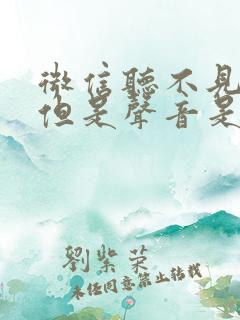 微信聽不見
但是聲音是
劉紫菜
未经同意禁止转载